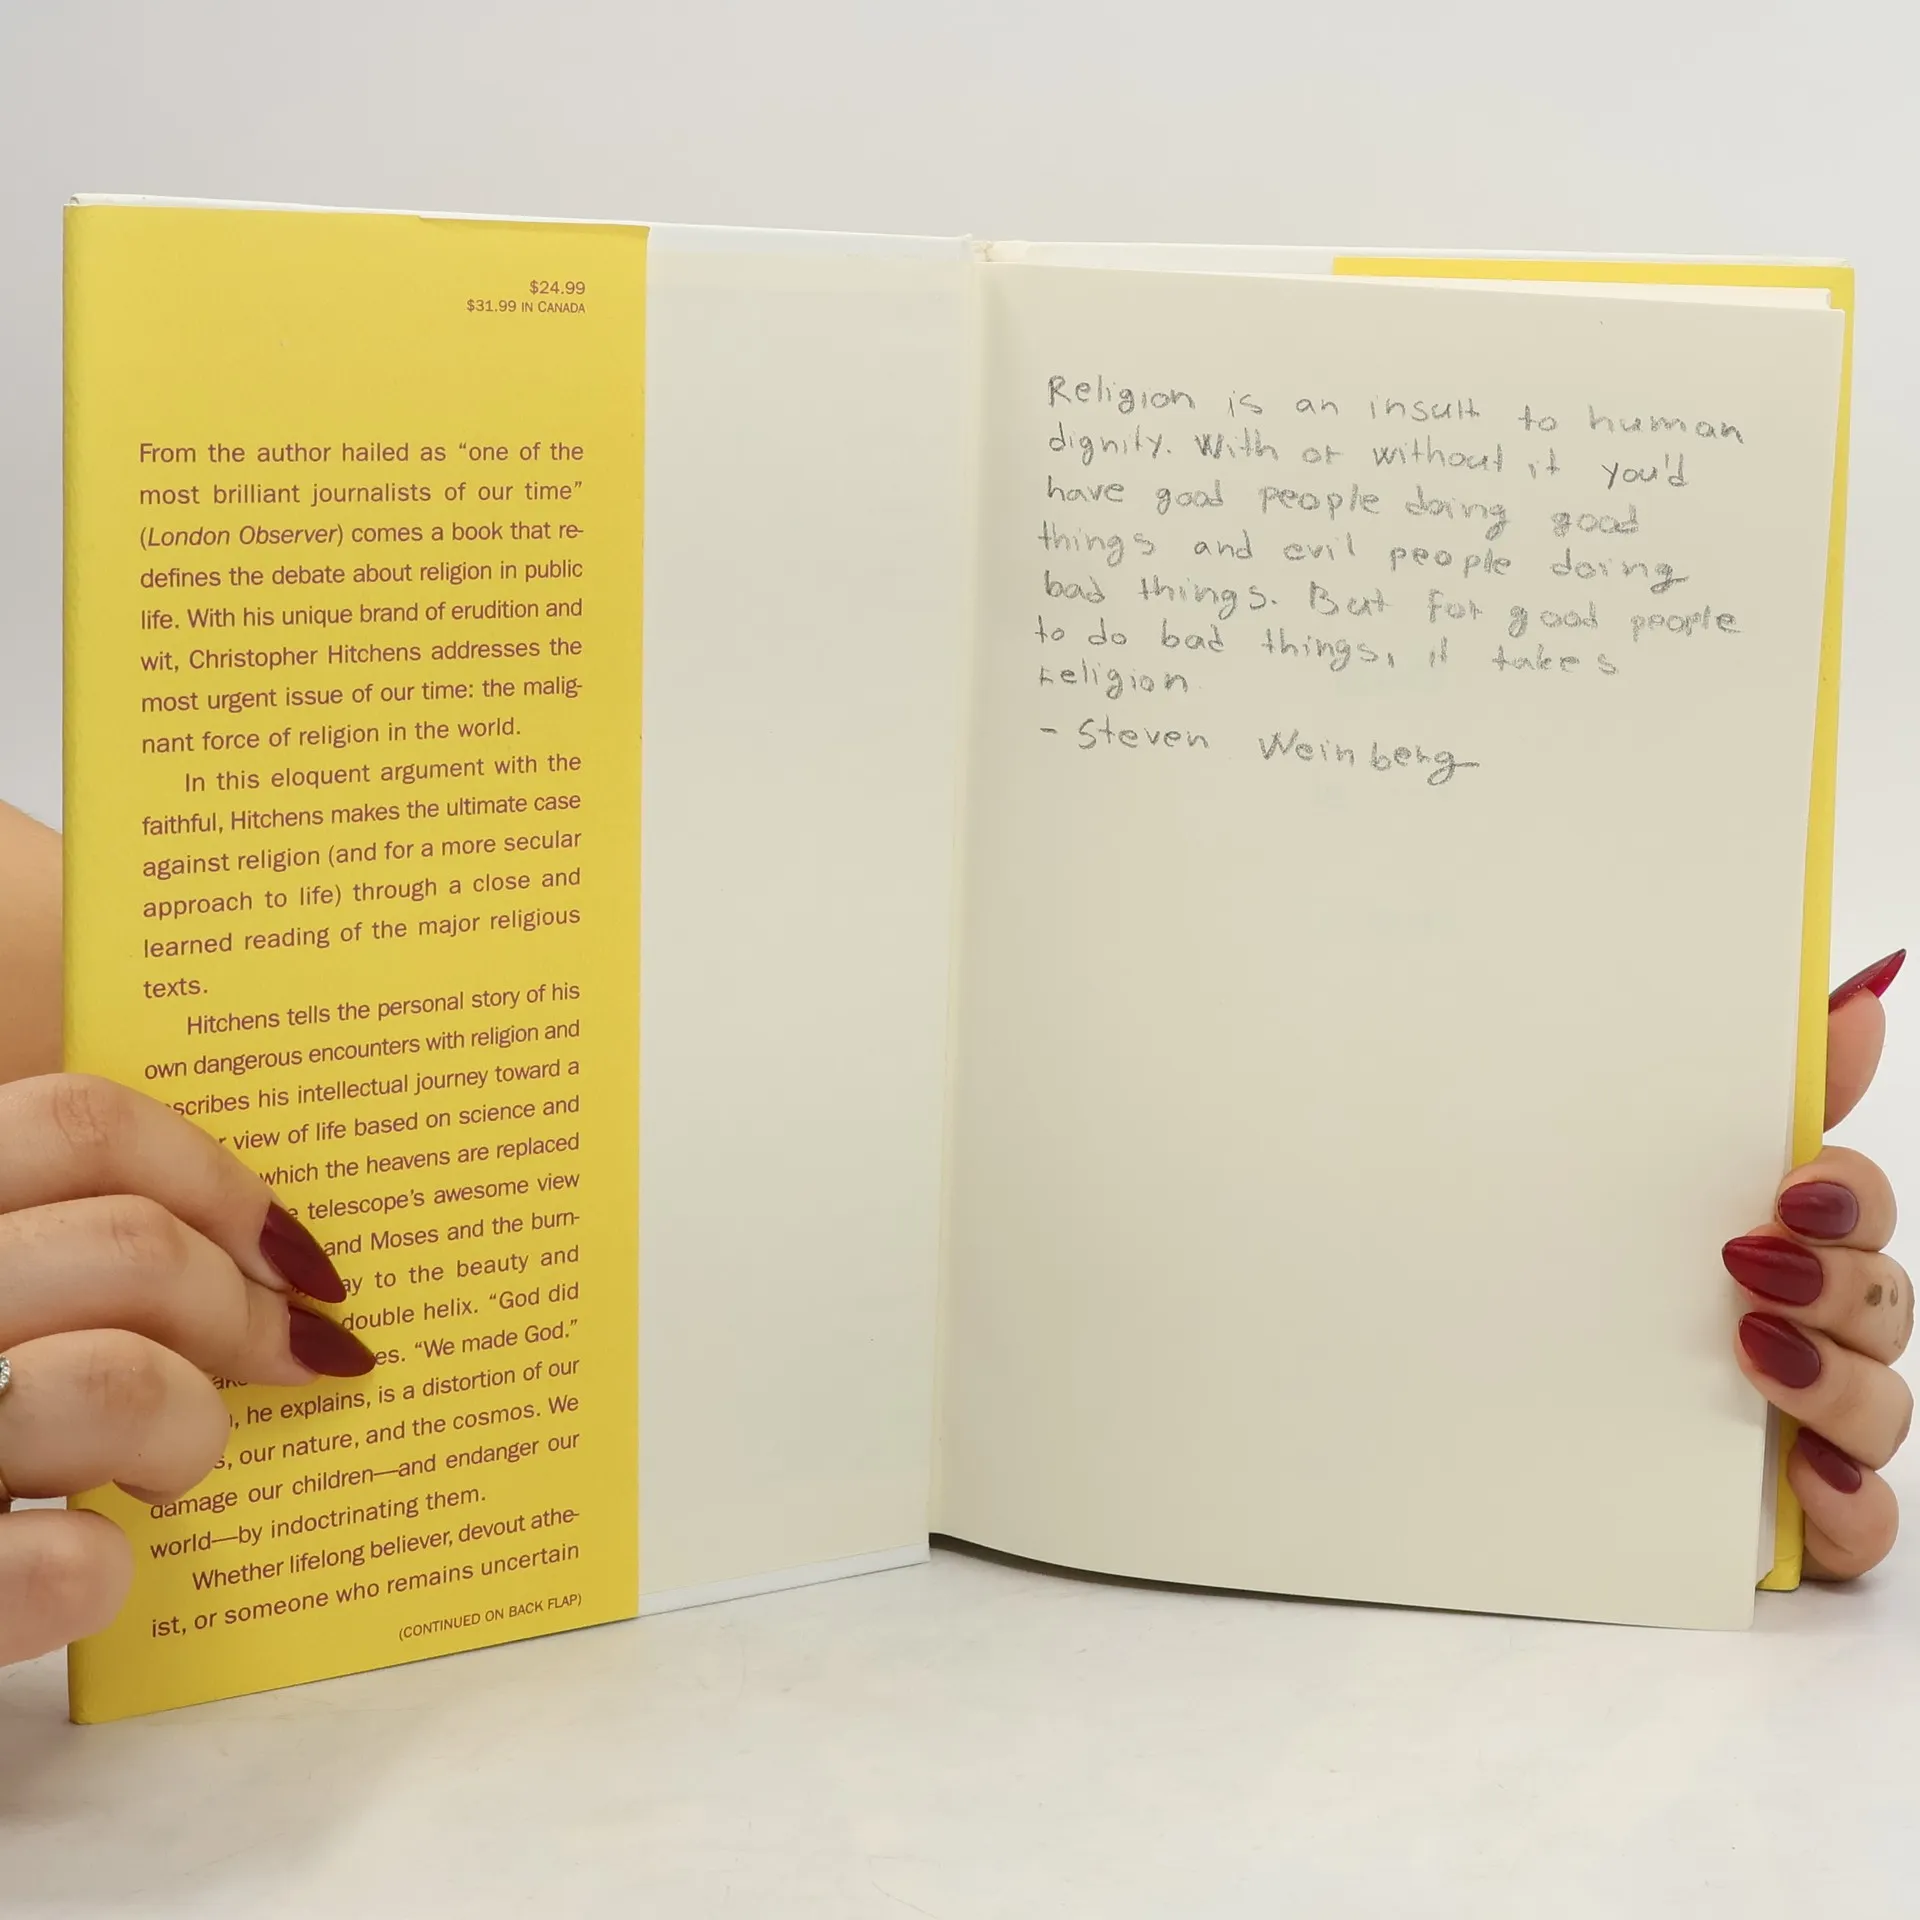 $24.99
$31.99 IN CANADA
From the author hailed as “one of the
most brilliant journalists of our time”
(London Observer) comes a book that re-
defines the debate about religion in public
life. With his unique brand of erudition and
wit, Christopher Hitchens addresses the
most urgent issue of our time: the malig-
nant force of religion in the world.
In this eloquent argument with the
faithful, Hitchens makes the ultimate case
against religion (and for a more secular
approach to life) through a close and
learned reading of the major religious
texts.
Hitchens tells the personal story of his
own dangerous encounters with religion and
scribes his intellectual journey toward a
view of life based on science and
which the heavens are replaced
telescope’s awesome view
and Moses and the burn-
ay to the beauty and
double helix. “God did
es. “We made God.”
, he explains, is a distortion of our
s, our nature, and the cosmos. We
damage our children—and endanger our
world—by indoctrinating them.
Whether lifelong believer, devout athe-
ist, or someone who remains uncertain
(CONTINUED ON BACK FLAP)
Religion is an insult to human
dignity. With or without it you'd
have good people doing good
things and evil people doing
bad things. But for good people
to do bad things, it takes
religion.
- Steven Weinberg